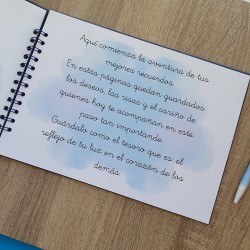 Aquí comienza la aventura de tus
mejores recuerdos.
En estas páginas quedan guardados
los deseos, las risas y el cariño de
quienes hoy te acompañan en este
paso tan importante.
Guárdalo como el tesoro que es: el
reflejo de tu luz en el corazón de los
demás